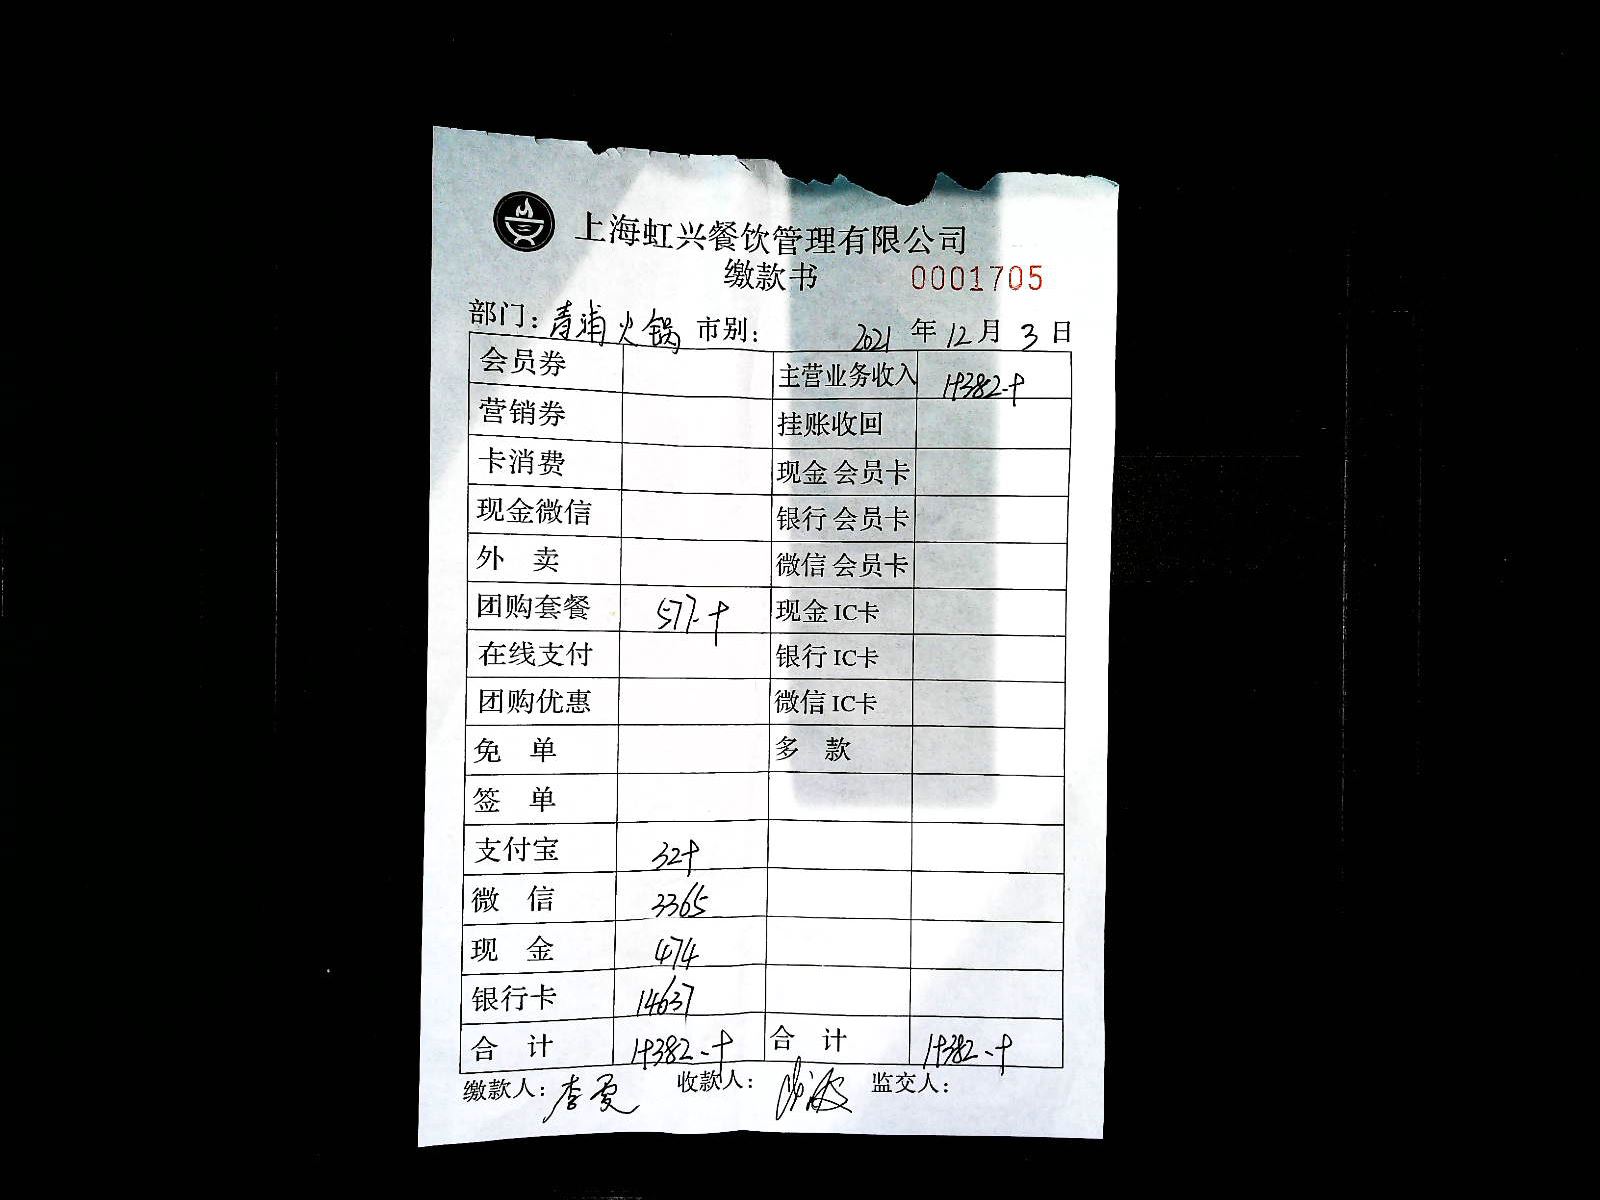 上海虹兴餐饮管理有限公司
缴款书 0001705
部门: 青浦火锅 市别: 2021 年 12 月 3 日
会员券 主营业务收入 19382.9
营销券 挂账收回
卡消费 现金会员卡
现金微信 银行会员卡
外 卖 微信会员卡
团购套餐 577.9 现金IC卡
在线支付 银行IC卡
团购优惠 微信IC卡
免 单 多 款
签 单
支付宝 329
微 信 3365
现 金 474
银行卡 14637
合 计 19382.9 合 计 19382.9
缴款人: 李 收款人: 监交人: